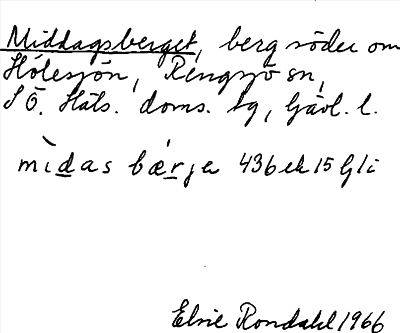 Middagsberget, berg söder om
Hölesjön, Rengsjö sn,
S Ö. Häls. doms. tg, Gävl. l.
mìdas bǽrje 436 ek 15 Gli
Elsie Rondahl 1966